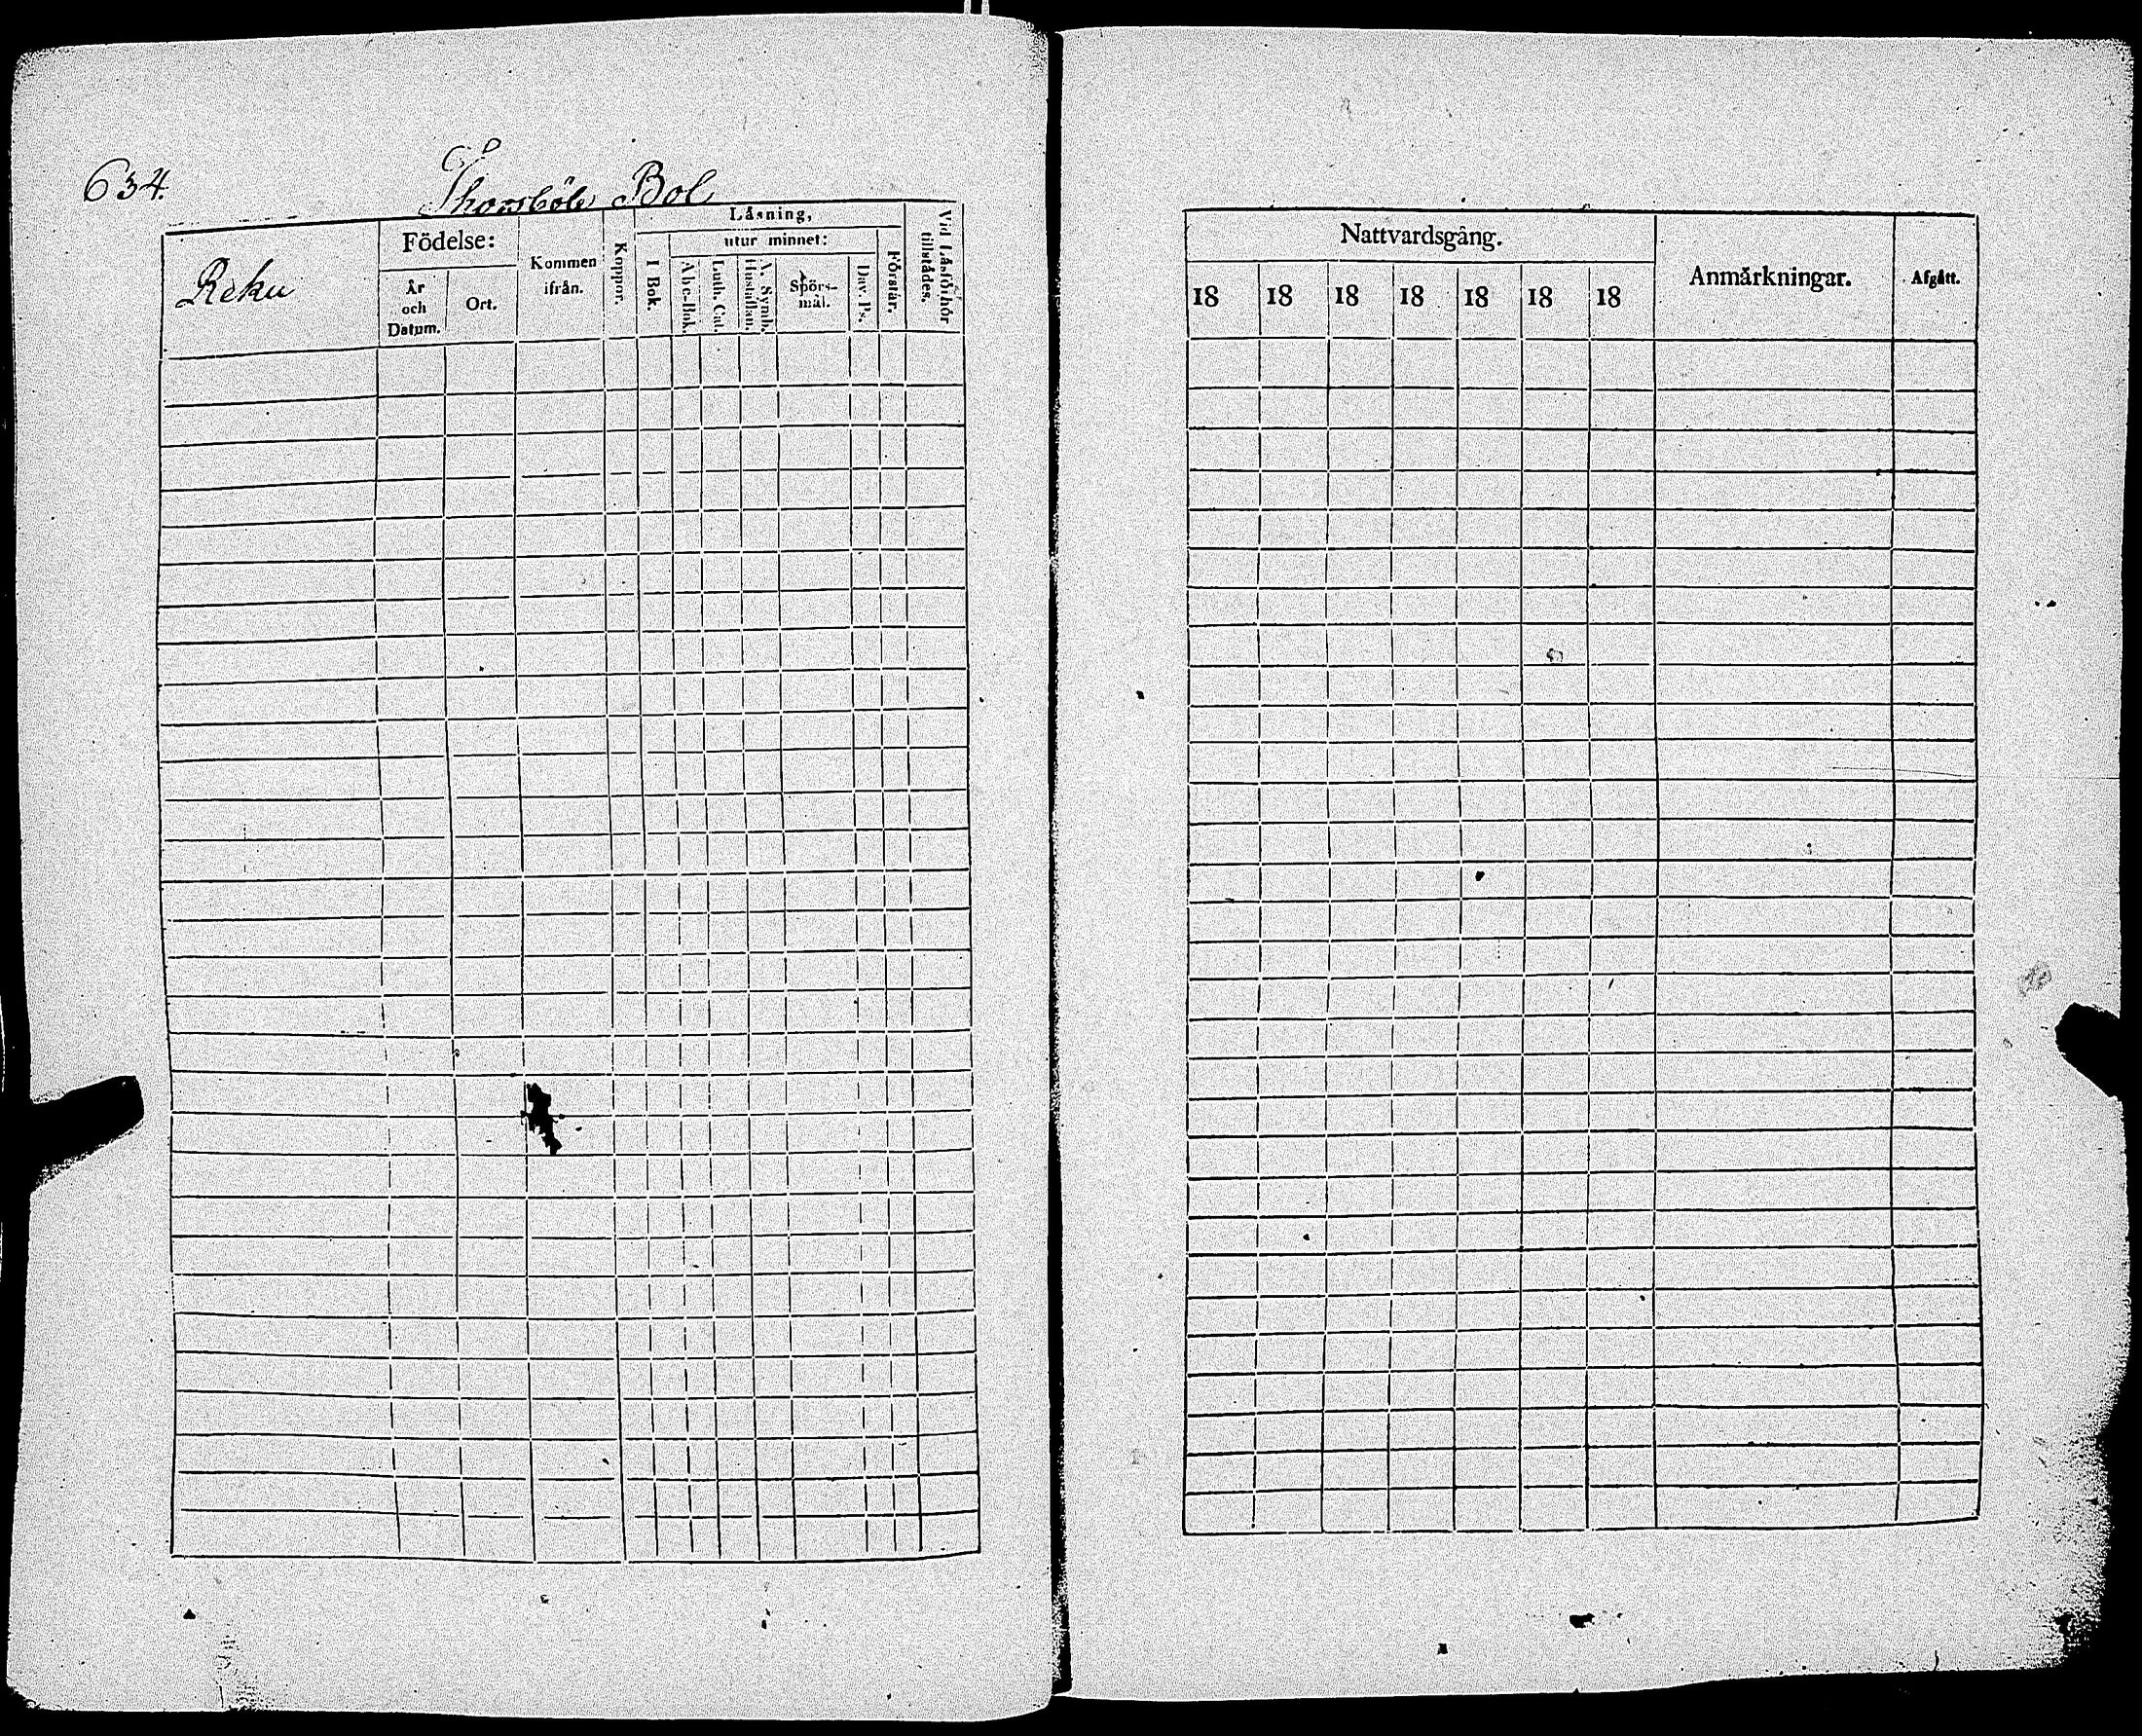 634.
Thorsböle Bol
Reku
Födelse:
År och Datum.
Ort.
Kommen ifrån.
Koppor.
Läsning,
I Bok.
utur minnet:
Abc-Bok.
Luth. Cat.
A. Symb. Hustaflan.
Spörs-
mål.
Dav. Ps.
Förstår.
Vid Läsförhör tillstädes.
Nattvardsgång.
18 18 18 18 18 18 18
Anmärkningar.
Afgått.